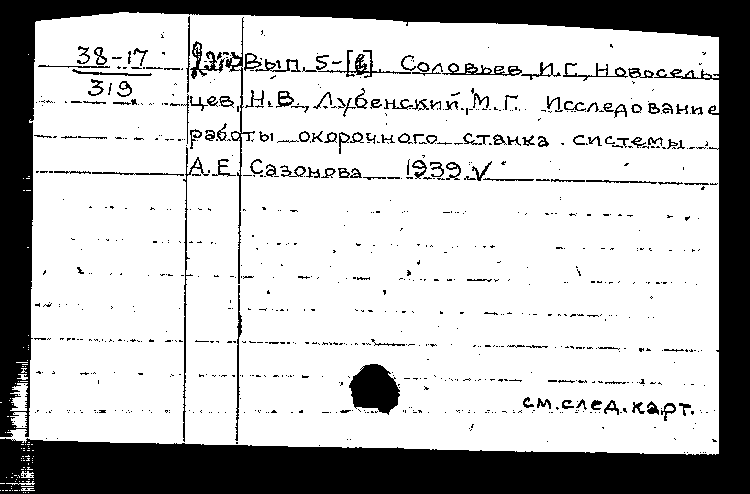 38-17
319
Вып. 5-[6]. Соловьев, И.Г., Новосель-
цев, Н.В., Лубенский, М.Г. Исследование
работы окорочного станка системы
А.Е. Сазонова 1939. V
см.след.карт.